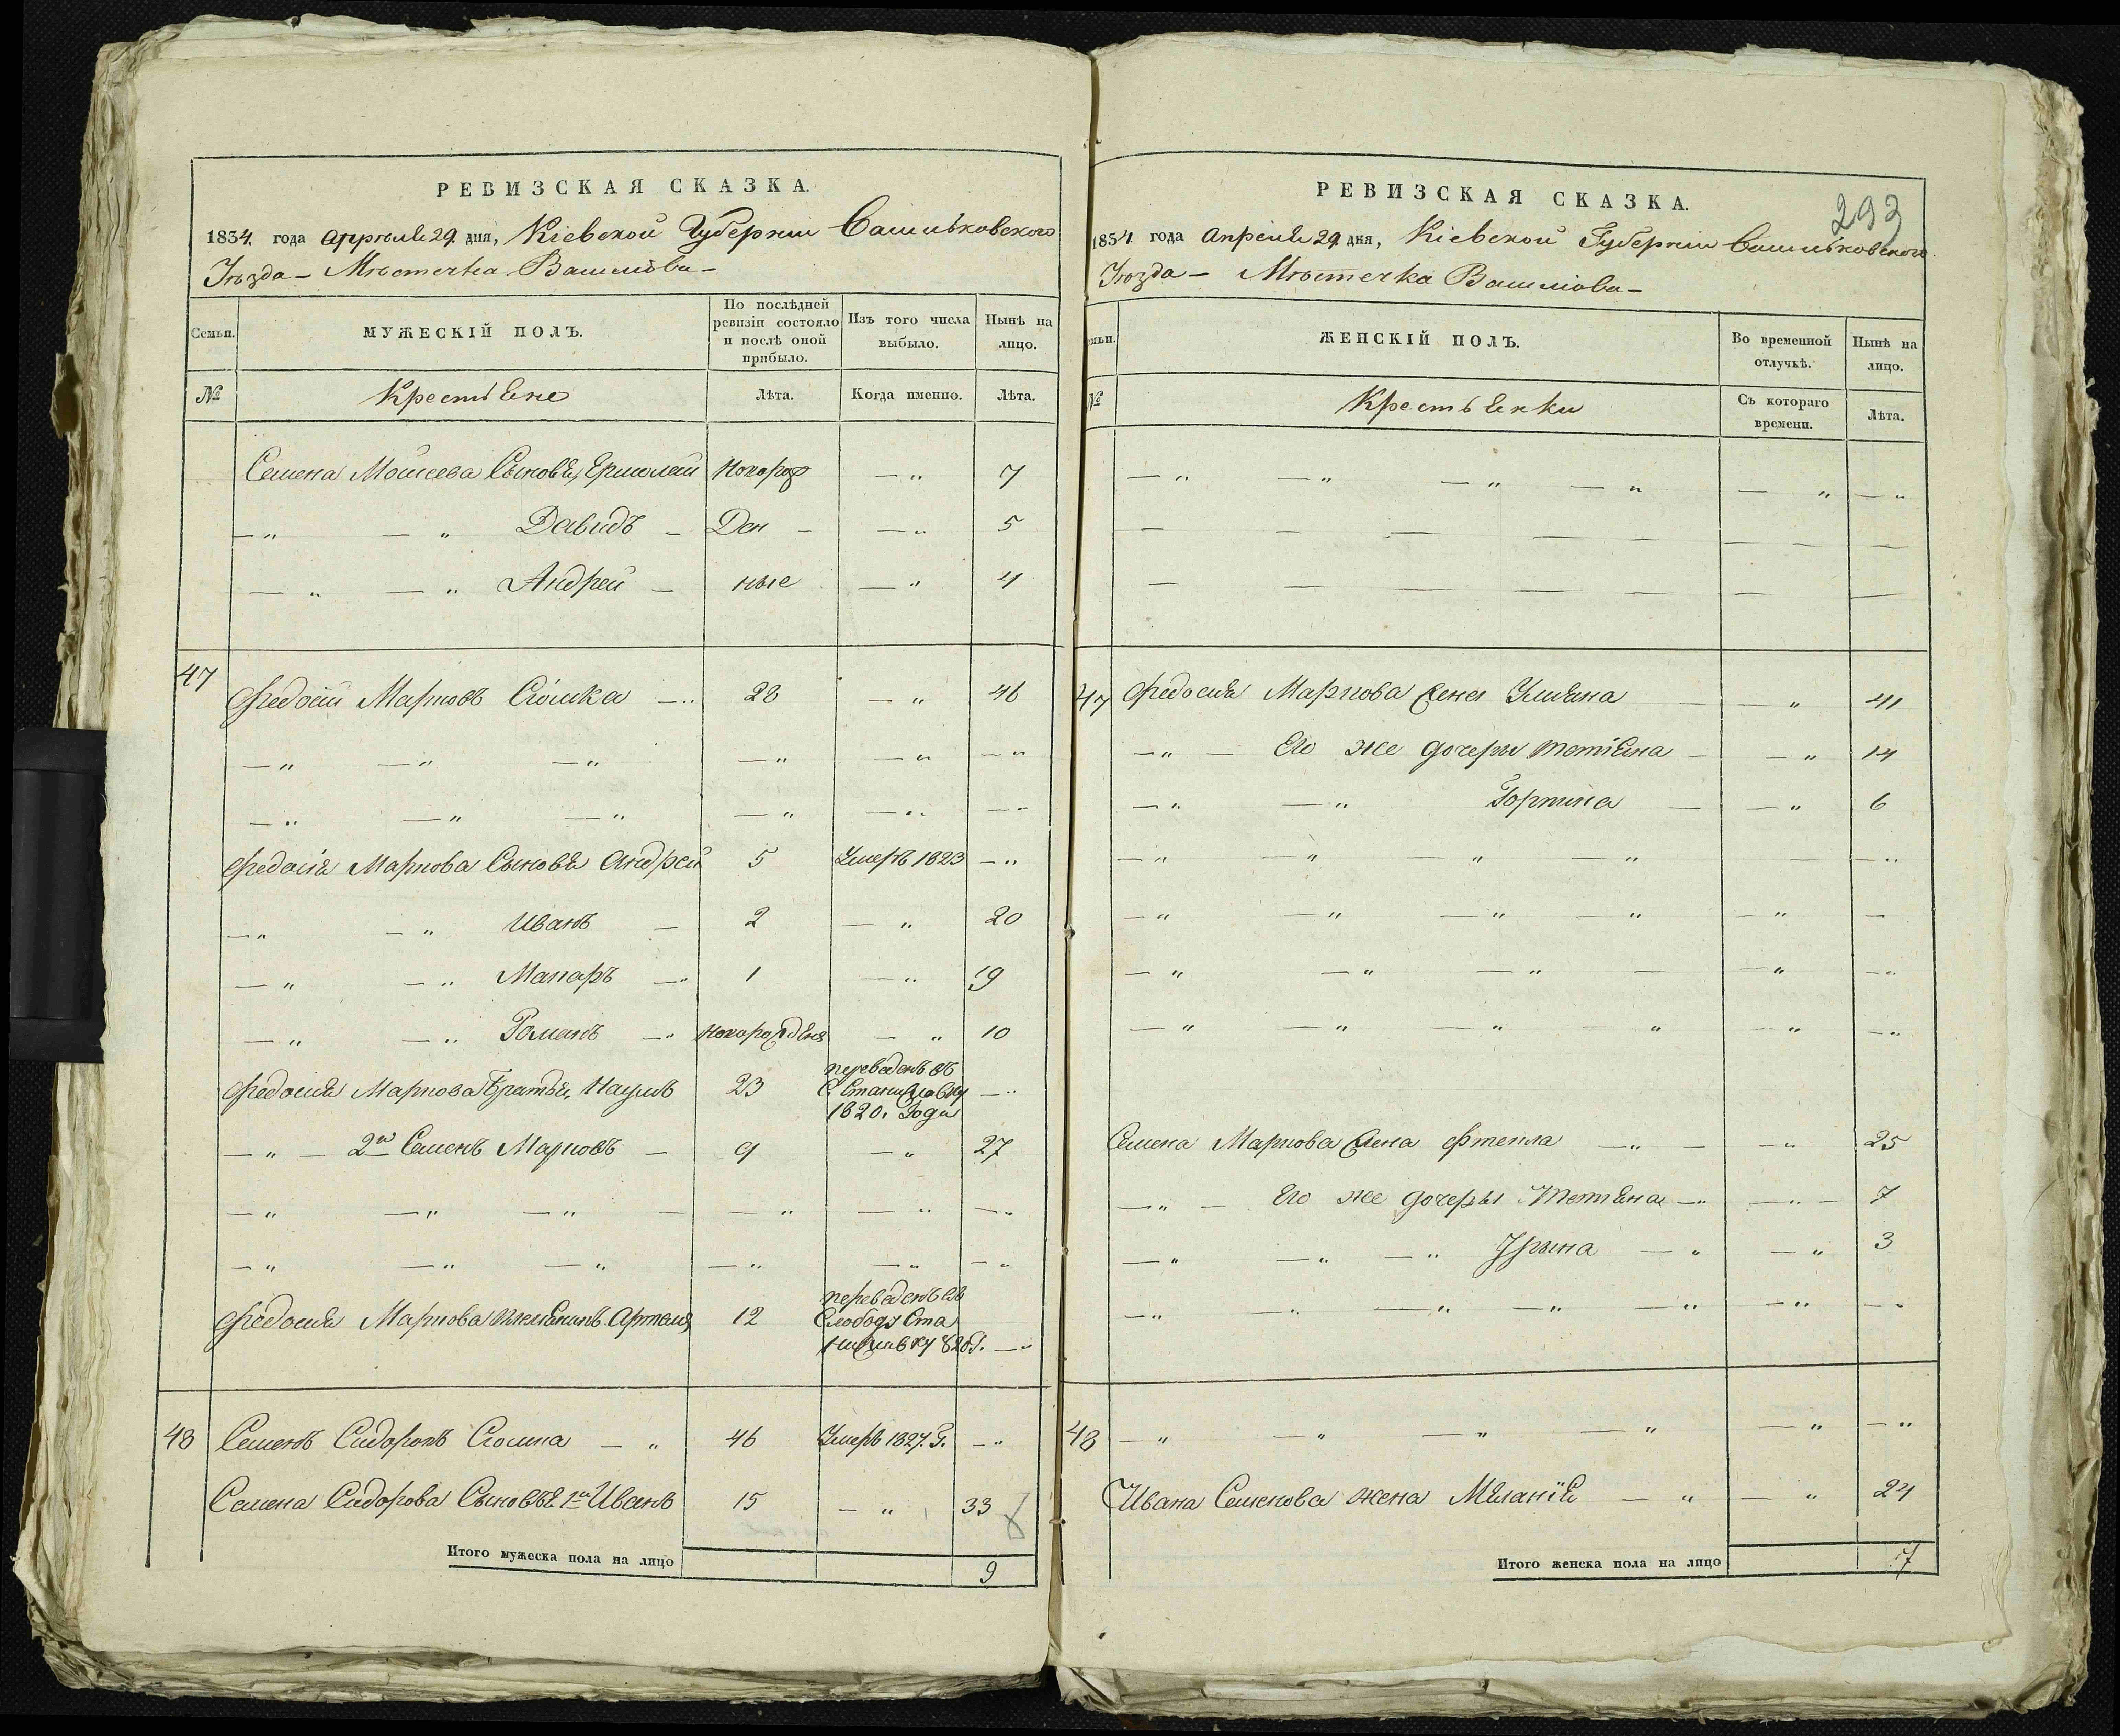 РЕВИЗСКАЯ СКАЗКА.
1834. года Апреля 29. дня, Кіевской Губерніи Васильковского
Уѣзда – Мѣстечка
Семьи.
МУЖЕСКІЙ ПОЛЪ.
По послѣдней ревизіи состояло и послѣ оной прибыло.
Изъ того числа выбыло.
Нынѣ на лицо.
№
Крестьяне
Лѣта.
Когда именно.
Лѣта.
Семена Моисеева Сыновья, Ермолай Новорож — „ 7
— „ — „ Давидъ — Ден — — „ 5
— „ — „ Андрей — ные — „ 4
47 Федосій Марковъ Сюмка — „ 28 — „ 46
— „ — „ — „ — „ — „ — „
— „ — „ — „ — „ — „ — „
Федосія Маркова Сыновья Андрей 5 Умеръ 1823 — „
— „ — „ Иванъ — 2 — „ 20
— „ — „ Макаръ — „ 1 — „ 19
— „ — „ Романъ — „ — „ 10
Федосія Маркова Братья, Наумъ 23 переведенъ въ С. Станиславку 1820. Года — „
— „ — 2й Семенъ Марковъ — 9 — „ 27
— „ — „ — „ — — „ — „ — „
— „ — „ — „ — „ — „ — „
Федосія Маркова 12 переведенъ въ Слободу Станиславку — „
48 Семенъ Сидоровъ Сюмка — „ 46 Умеръ 1827. Г. — „
Семена Сидорова Сыновья 1й Иванъ 15 — „ 33
8
Итого мужеска пола на лицо 9
РЕВИЗСКАЯ СКАЗКА.
293
1834 года Апреля 29. дня, Кіевской Губерніи Васильковского
Уѣзда – Мѣстечка
Семьи.
ЖЕНСКІЙ ПОЛЪ.
Во временной отлучкѣ.
Нынѣ на лицо.
№
Крестьянки
Съ котораго времени.
Лѣта.
— „ — „ — „ — „ — „ — „
— — — — — — —
— — — — — — —
47 Федосія Маркова жена Ульяна — — „ 41
— „ — Его же дочеры Тетіяна — — „ 14
— „ — „ Горпина — — „ 6
— „ — „ — „ — „ — — „
— „ — „ — „ — „ — „ —
— „ — „ — „ — — „ — „
— „ — „ „ — „ — „ — „
Семена Маркова жена Фтекла — „ — — „ 25
— „ — Его же дочеры Тетіяна — „ — „ — 7
— „ — „ — „ Ирына — „ — „ 3
— „ — „ — „ — „ — „ — „ — „
48 — „ — „ — „ — „ — „ — „
Ивана Семенова жена Миланія — „ — „ 24
Итого женска пола на лицо 7